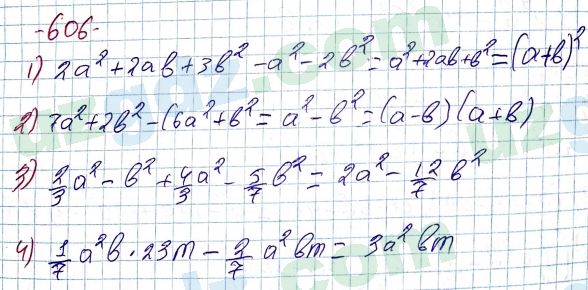 -606-
1) 2a²+2ab+3b²-a²-2b²=a²+2ab+b²=(a+b)²
2) 7a²+2b²-(6a²+b²=a²-b²=(a-b)(a+b)
3) 2/3 a²-b²+4/3 a²-5/7 b²=2a²-12/7 b²
4) 1/7 a²b·23m-2/7 a²bm=3a²bm